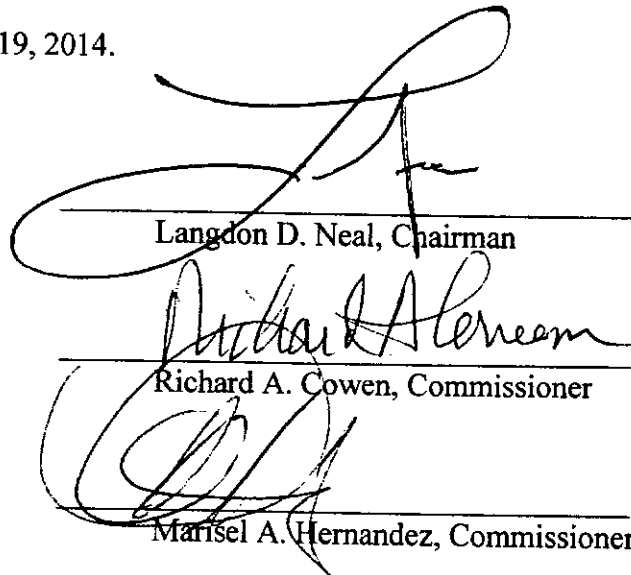 19, 2014.
Langdon D. Neal, Chairman
Richard A. Cowen
Richard A. Cowen, Commissioner
Marisel A. Hernandez, Commissioner